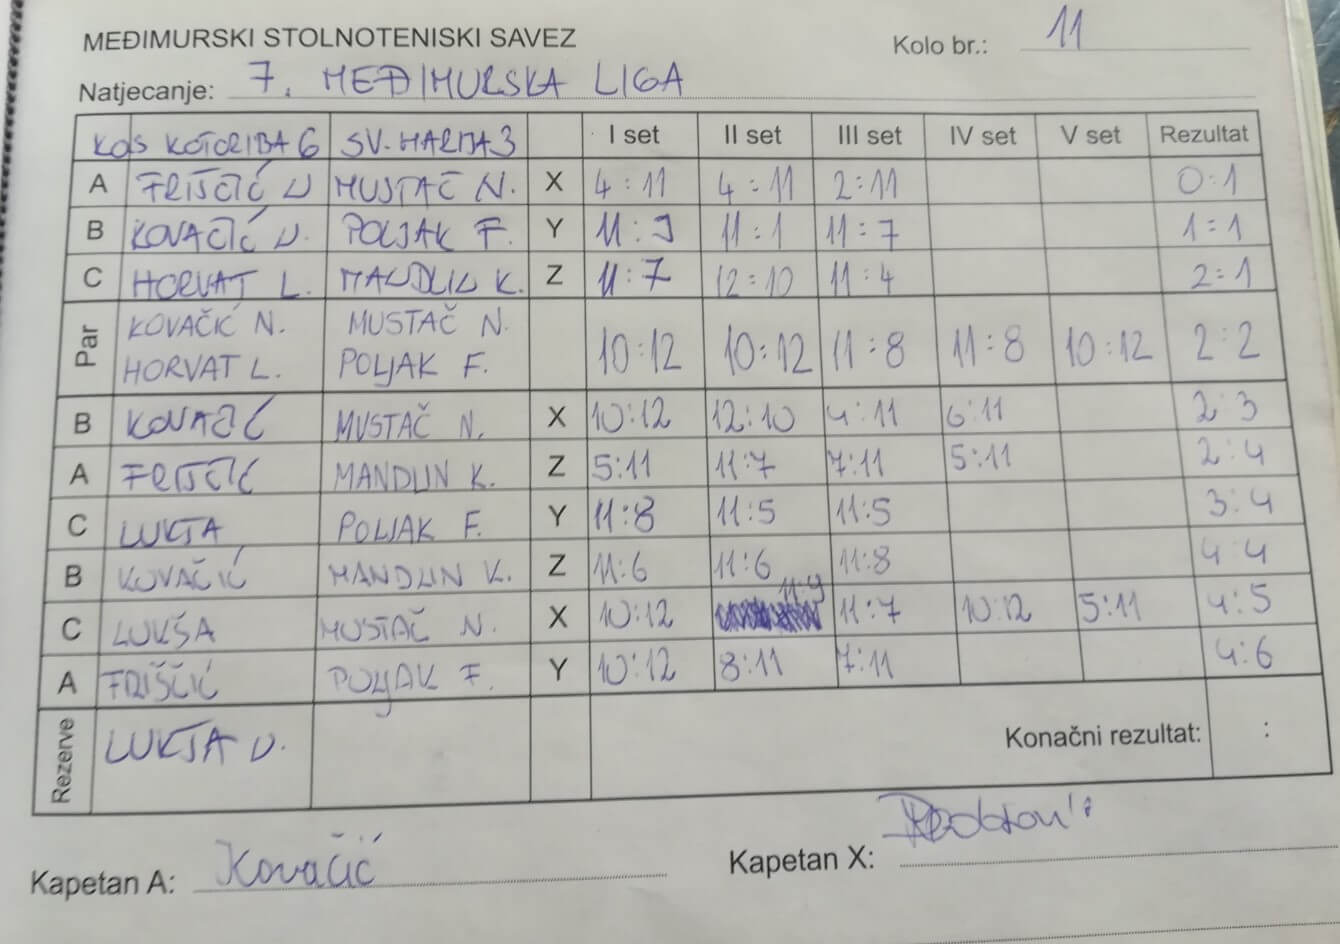 MEĐIMURSKI STOLNOTENISKI SAVEZ
Kolo br.: 11
Natjecanje: 7. MEĐIMURSKA LIGA
KDS KOTORIBA 6 SV. MARIJA 3 I set II set III set IV set V set Rezultat
A FRIŠČIĆ N MUSTAČ N. X 4:11 4:11 2:11 0:1
B KOVAČIĆ N. POLJAK F. Y 11:9 11:1 11:7 1:1
C HORVAT L. MANDLIN K. Z 11:7 12:10 11:4 2:1
Par
KOVAČIĆ N. MUSTAČ N.
HORVAT L. POLJAK F.
10:12 10:12 11:8 11:8 10:12 2:2
B KOVAČIĆ MUSTAČ N. X 10:12 12:10 4:11 6:11 2:3
A FRIŠČIĆ MANDLIN K. Z 5:11 11:7 7:11 5:11 2:4
C LUKŠA POLJAK F. Y 11:8 11:5 11:5 3:4
B KOVAČIĆ MANDLIN K. Z 11:6 11:6 11:8 4:4
C LUKŠA MUSTAČ N. X 10:12 11:9 11:7 10:12 5:11 4:5
A FRIŠČIĆ POLJAK F. Y 10:12 8:11 7:11 4:6
Rezerve LUKŠA N. Konačni rezultat: :
Kapetan A: Kovačić
Kapetan X: